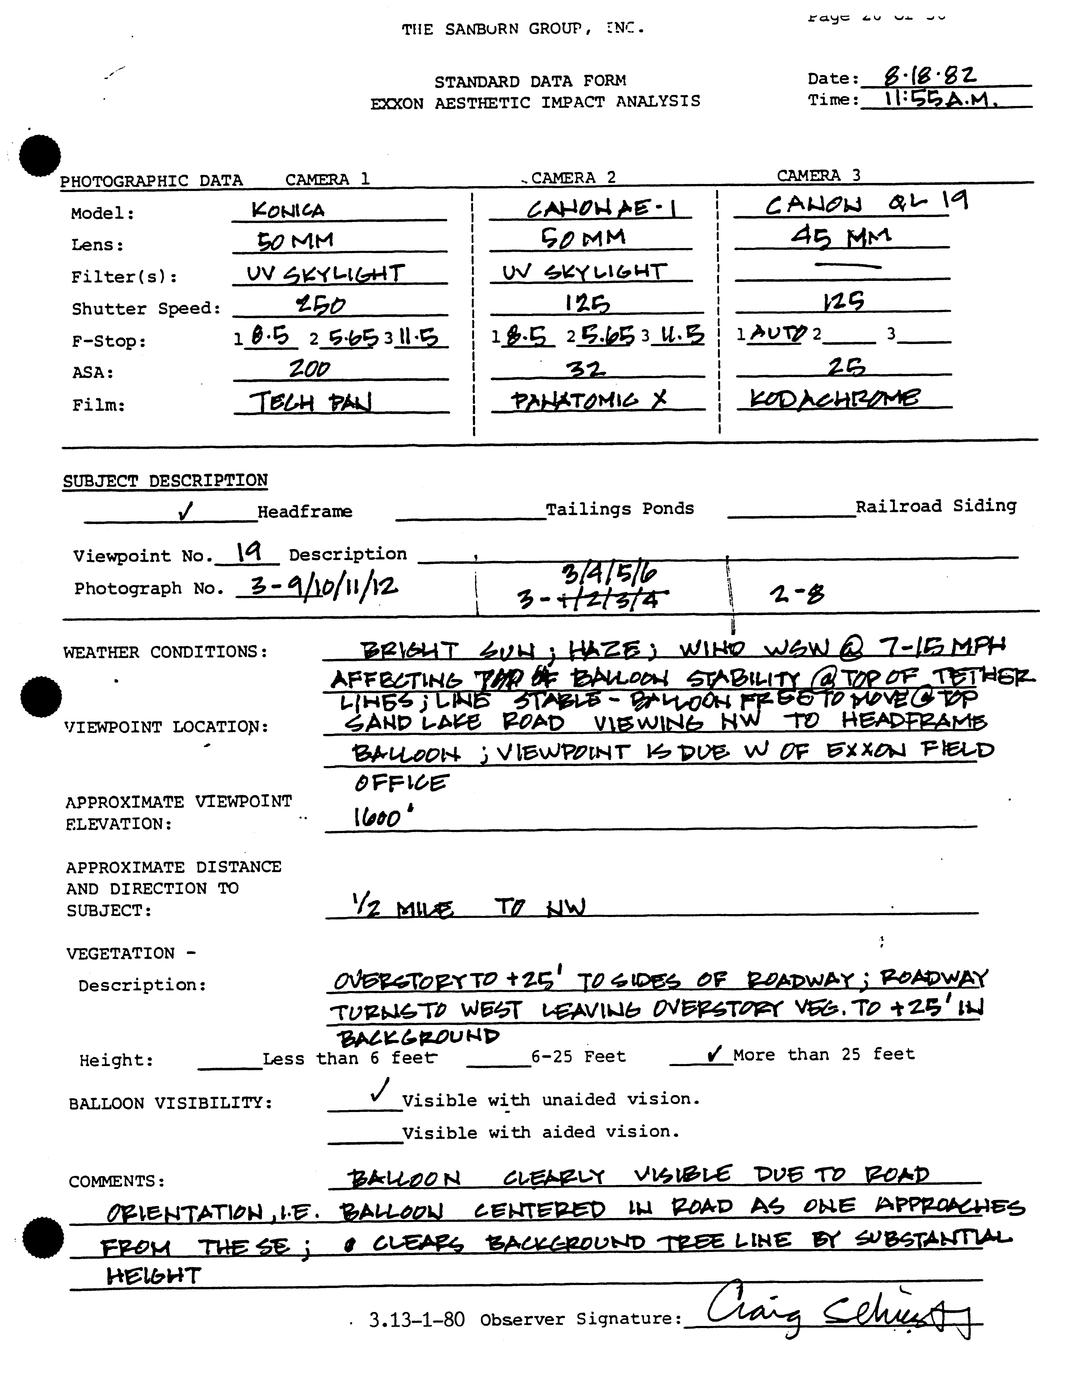 THE SANBORN GROUP, INC.
STANDARD DATA FORM
EXXON AESTHETIC IMPACT ANALYSIS
Date: 8·18·82
Time: 11:55 A.M.
PHOTOGRAPHIC DATA CAMERA 1 CAMERA 2 CAMERA 3
Model: KONICA CANON AE-1 CANON QL 19
Lens: 50 MM 50 MM 45 MM
Filter(s): UV SKYLIGHT UV SKYLIGHT —
Shutter Speed: 250 125 125
F-Stop: 1 8.5 2 5.65 3 11.5 1 8.5 2 5.65 3 11.5 1 AUTO 2 3
ASA: 200 32 25
Film: TECH PAN PANATOMIC X KODACHROME
SUBJECT DESCRIPTION
✓ Headframe Tailings Ponds Railroad Siding
Viewpoint No. 19 Description
3/4/5/6
Photograph No. 3-9/10/11/12 3-1/2/3/4 2-8
WEATHER CONDITIONS: BRIGHT SUN; HAZE; WIND WSW @ 7-15 MPH
AFFECTING BALLOON STABILITY @ TOP OF TETHER
LINES; LINE STABLE - BALLOON FREE TO MOVE @ TOP
VIEWPOINT LOCATION: SAND LAKE ROAD VIEWING NW TO HEADFRAME
BALLOON; VIEWPOINT IS DUE W OF EXXON FIELD
OFFICE
APPROXIMATE VIEWPOINT
ELEVATION: 1600'
APPROXIMATE DISTANCE
AND DIRECTION TO
SUBJECT: 1/2 MILE TO NW
VEGETATION -
Description: OVERSTORY TO +25' TO SIDES OF ROADWAY; ROADWAY
TURNS TO WEST LEAVING OVERSTORY VEG. TO +25' IN
BACKGROUND
Height: Less than 6 feet 6-25 Feet ✓ More than 25 feet
BALLOON VISIBILITY: ✓ Visible with unaided vision.
Visible with aided vision.
COMMENTS: BALLOON CLEARLY VISIBLE DUE TO ROAD
ORIENTATION, I.E. BALLOON CENTERED IN ROAD AS ONE APPROACHES
FROM THE SE; CLEARS BACKGROUND TREE LINE BY SUBSTANTIAL
HEIGHT
3.13-1-80 Observer Signature: Craig